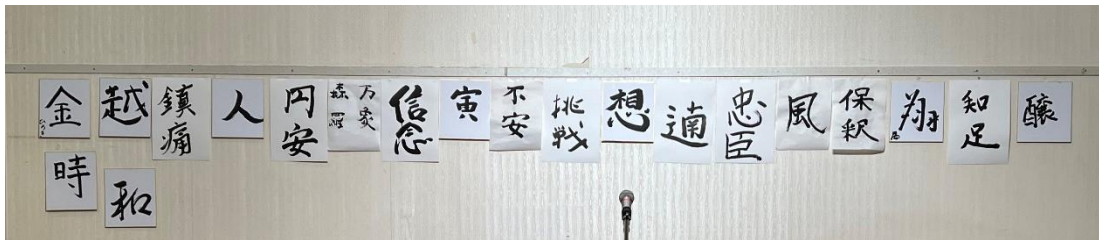 金
越
鎮痛
人
円安
森羅
万象
信念
寅
不安
挑戦
想
遖
忠臣
風
保釈
翔
知足
醸
時
和